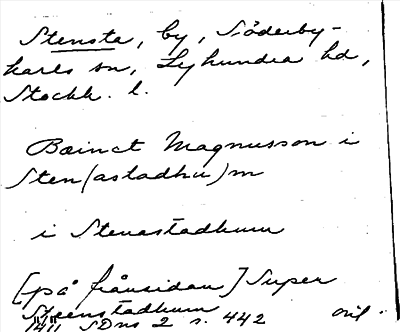 Stensta, by, Söderby-
karls sn, Lyhundra hd,
Stockh. l.
Bænct Magnusson i
Sten(astadhu)m
i Stenastadhum
[på frånsidan] Super
Steenstadhum
1411 SDns 2 s. 442 oril.